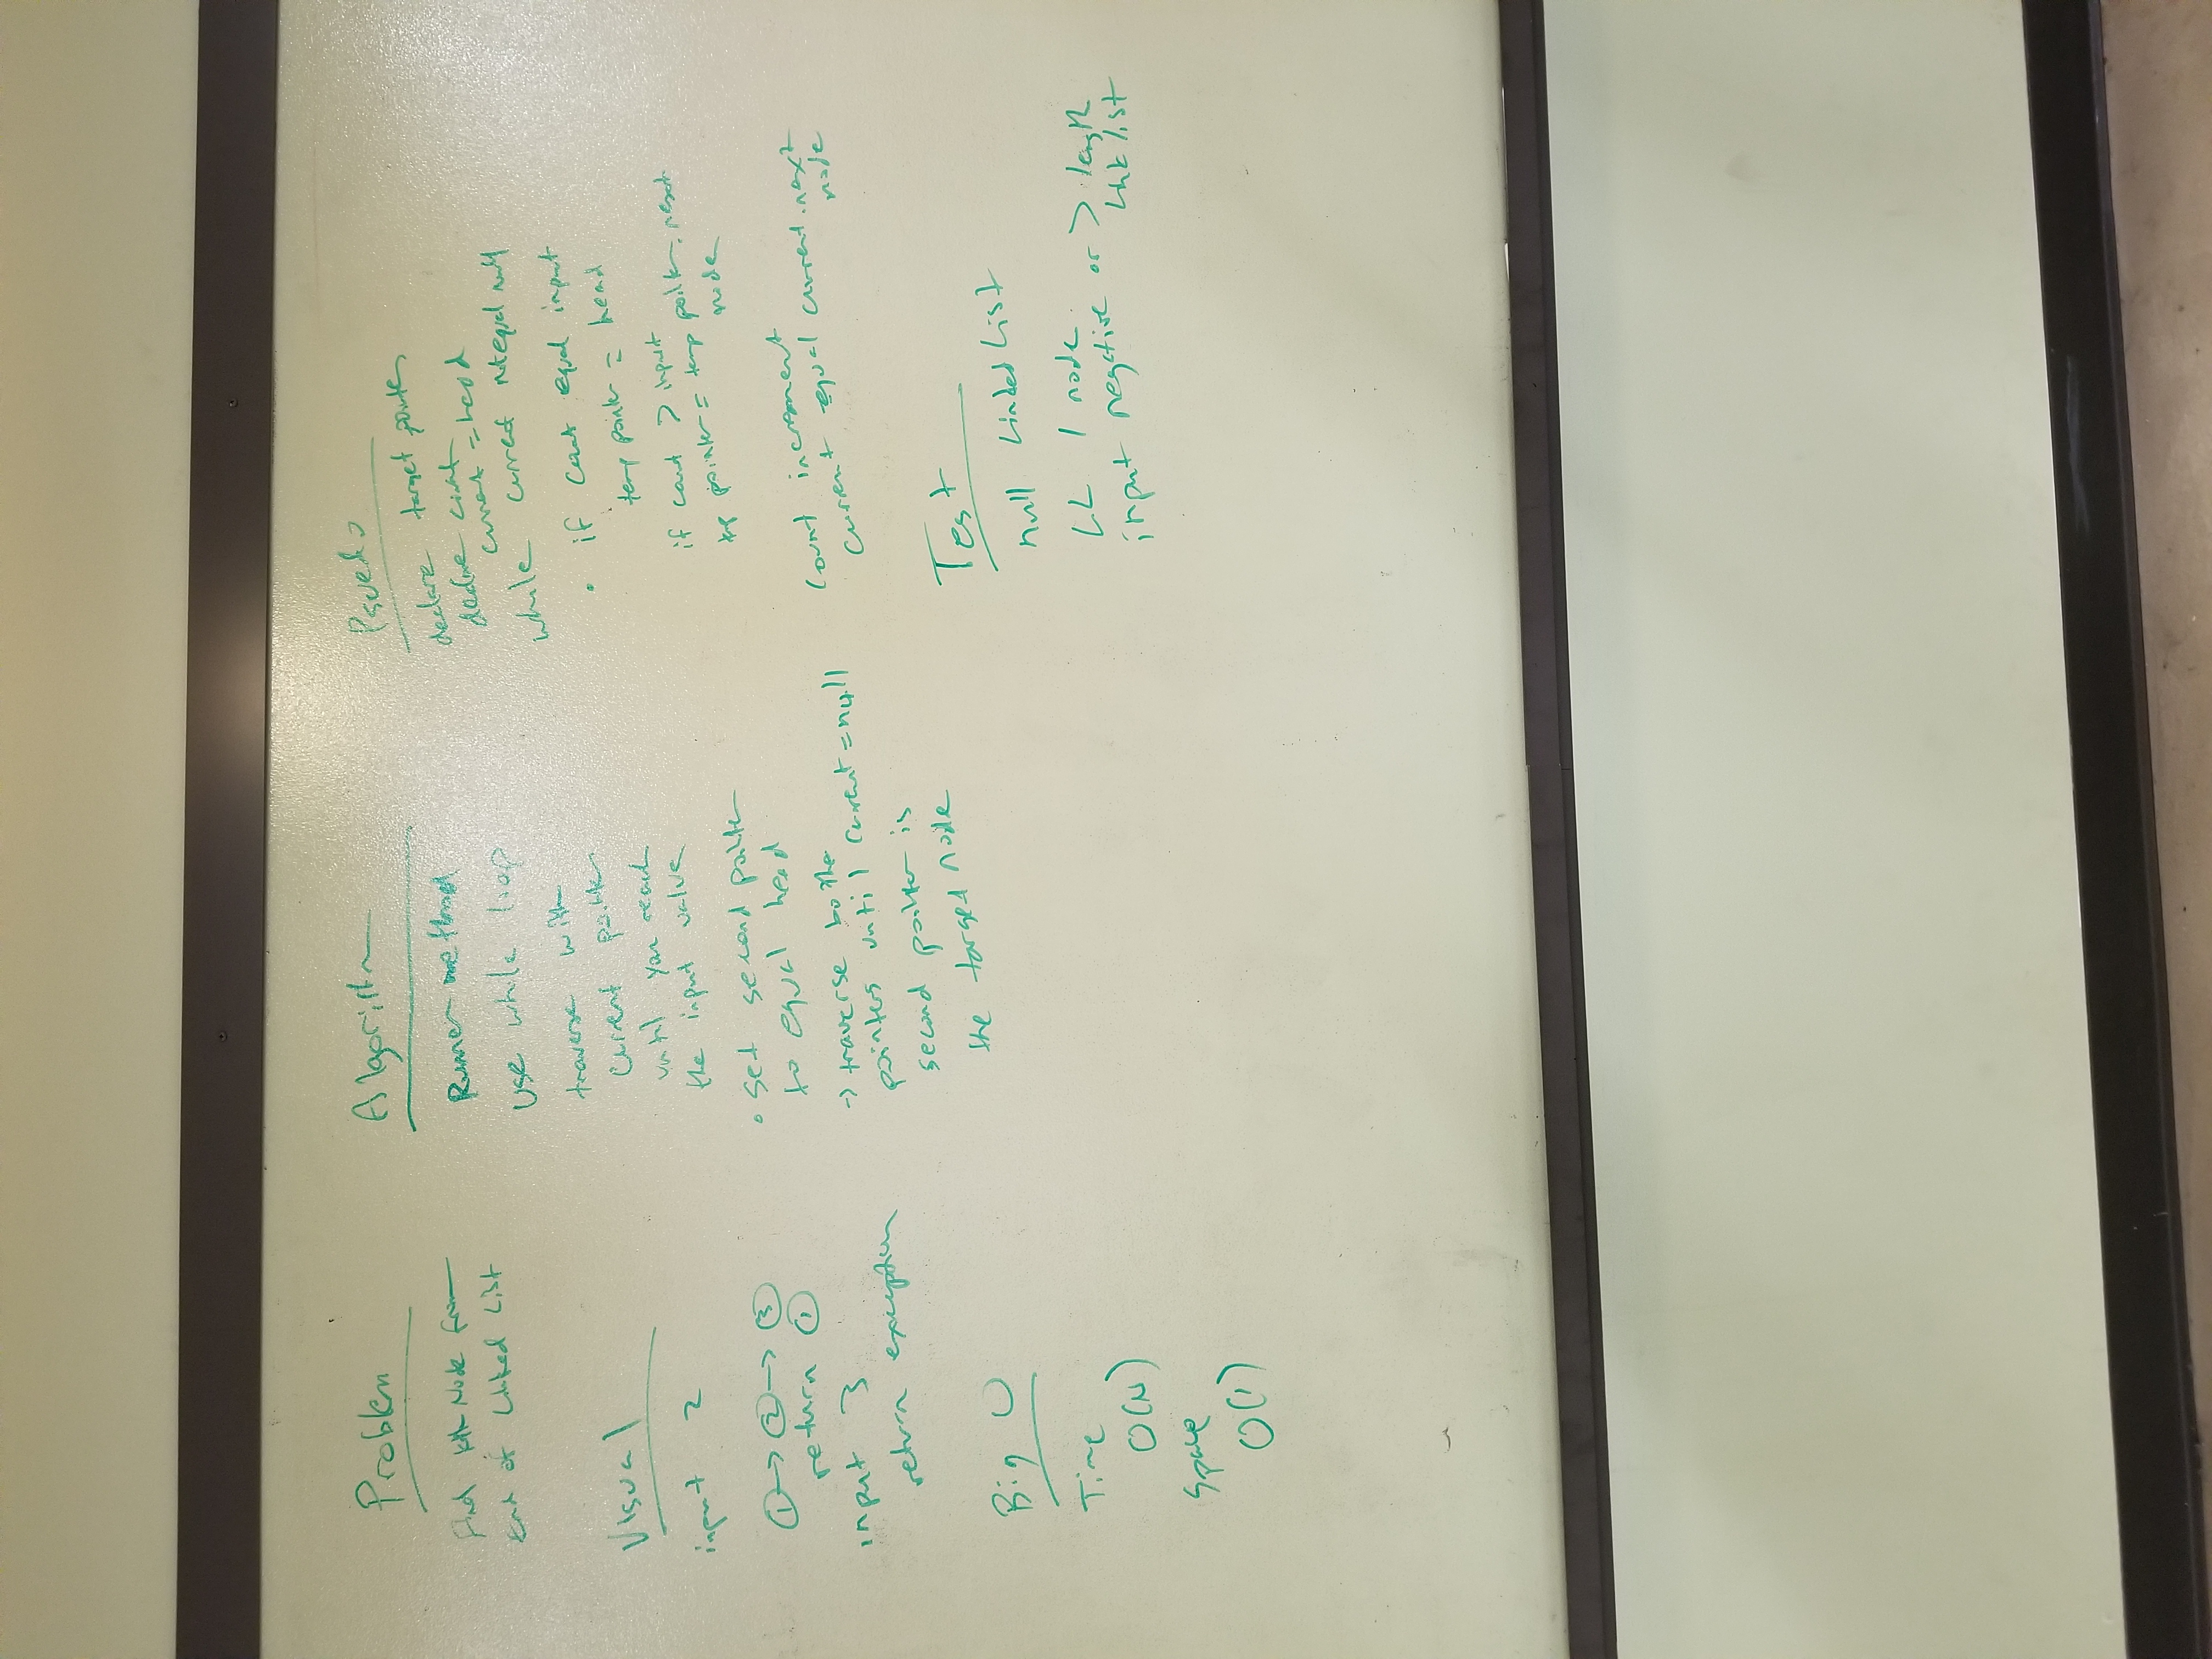 Problem
Find kth Node from
End of Linked List
Visual
input 2
1 → 2 → 3
return 1
input 3
return exception
Big O
Time
O(N)
Space
O(1)
Algorithm
Runner method
Use while loop
traverse with
current pointer
until you reach
the input value
• set second pointer
to equal head
→ traverse both
pointers until current = null
second pointer is
the target node
Psuedo
declare target pointer
declare count
current = head
while current not equal null
• if count equal input
temp pointer = head
if count > input
tmp pointer = temp pointer. next
node
Count increment
current equal current.next
node
Test
null Linked List
LL 1 node
input negative or > length
Link list